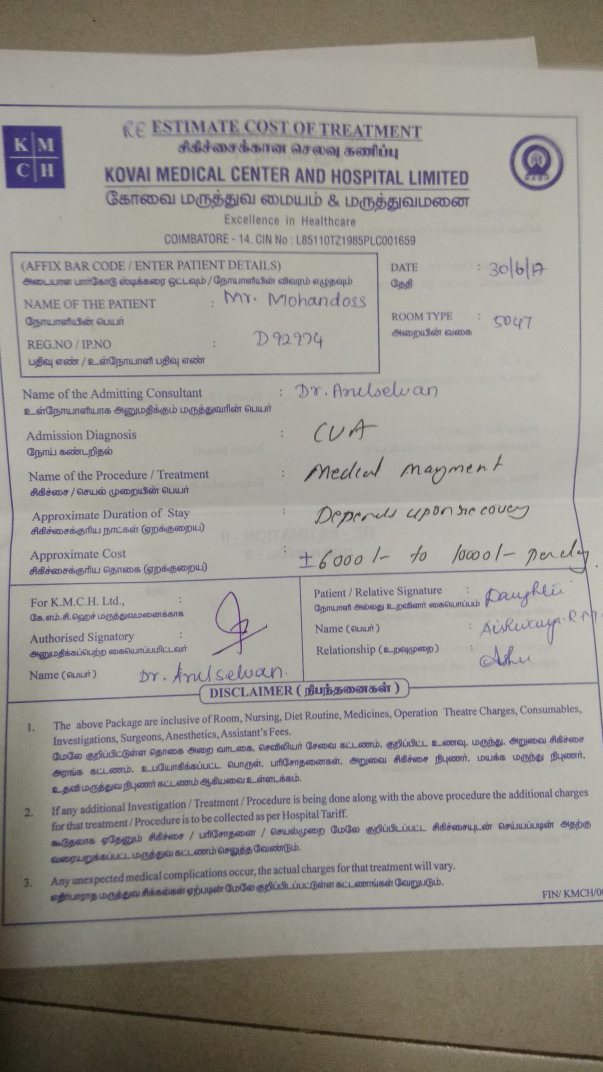 K M
C H
RE ESTIMATE COST OF TREATMENT
சிகிச்சைக்கான செலவு கணிப்பு
KOVAI MEDICAL CENTER AND HOSPITAL LIMITED
கோவை மருத்துவ மையம் & மருத்துவமனை
Excellence in Healthcare
COIMBATORE - 14. CIN No : L85110TZ1985PLC001659
(AFFIX BAR CODE / ENTER PATIENT DETAILS)
அடையாள பார்கோடு ஸ்டிக்கரை ஒட்டவும் / நோயாளியின் விவரம் எழுதவும்
NAME OF THE PATIENT : Mr. Mohandoss
நோயாளியின் பெயர்
REG.NO / IP.NO : D92974
பதிவு எண் / உள்நோயாளி பதிவு எண்
DATE : 30/6/17
தேதி
ROOM TYPE : 5047
அறையின் வகை
Name of the Admitting Consultant : Dr. Arulselvan
உள்நோயாளியாக அனுமதிக்கும் மருத்துவரின் பெயர்
Admission Diagnosis : CVA
நோய் கண்டறிதல்
Name of the Procedure / Treatment : Medical
சிகிச்சை / செயல் முறையின் பெயர்
Approximate Duration of Stay : Depends upon recovery
சிகிச்சைக்குரிய நாட்கள் (ஏறக்குறைய)
Approximate Cost : ± 6000/- to 10000/- perday.
சிகிச்சைக்குரிய தொகை (ஏறக்குறைய)
For K.M.C.H. Ltd., :
கே.எம்.சி.ஹெச் மருத்துவமனைக்காக
Authorised Signatory :
அனுமதிக்கப்பெற்ற கையொப்பமிட்டவர்
Name (பெயர்) : Dr. Arulselvan.
Patient / Relative Signature : Daughter
நோயாளி அல்லது உறவினர் கையொப்பம்
Name (பெயர்) : Aishwarya
Relationship (உறவுமுறை) :
DISCLAIMER ( நிபந்தனைகள் )
1. The above Package are inclusive of Room, Nursing, Diet Routine, Medicines, Operation Theatre Charges, Consumables,
Investigations, Surgeons, Anesthetics, Assistant's Fees.
மேலே குறிப்பிட்டுள்ள தொகை அறை வாடகை, செவிலியர் சேவை கட்டணம், குறிப்பிட்ட உணவு, மருந்து, அறுவை சிகிச்சை
அரங்க கட்டணம், உபயோகிக்கப்பட்ட பொருள், பரிசோதனைகள், அறுவை சிகிச்சை நிபுணர், மயக்க மருந்து நிபுணர்,
உதவி மருத்துவ நிபுணர் கட்டணம் ஆகியவை உள்ளடக்கம்.
2. If any additional Investigation / Treatment / Procedure is being done along with the above procedure the additional charges
for that treatment / Procedure is to be collected as per Hospital Tariff.
கூடுதலாக ஏதேனும் சிகிச்சை / பரிசோதனை / செயல்முறை மேலே குறிப்பிடப்பட்ட சிகிச்சையுடன் செய்யப்படின் அதற்கு
வரையறுக்கப்பட்ட மருத்துவ கட்டணம் செலுத்த வேண்டும்.
3. Any unexpected medical complications occur, the actual charges for that treatment will vary.
எதிர்பாராத மருத்துவ சிக்கல்கள் ஏற்படின் மேலே குறிப்பிடப்பட்டுள்ள கட்டணங்கள் வேறுபடும்.
FIN/ KMCH/0